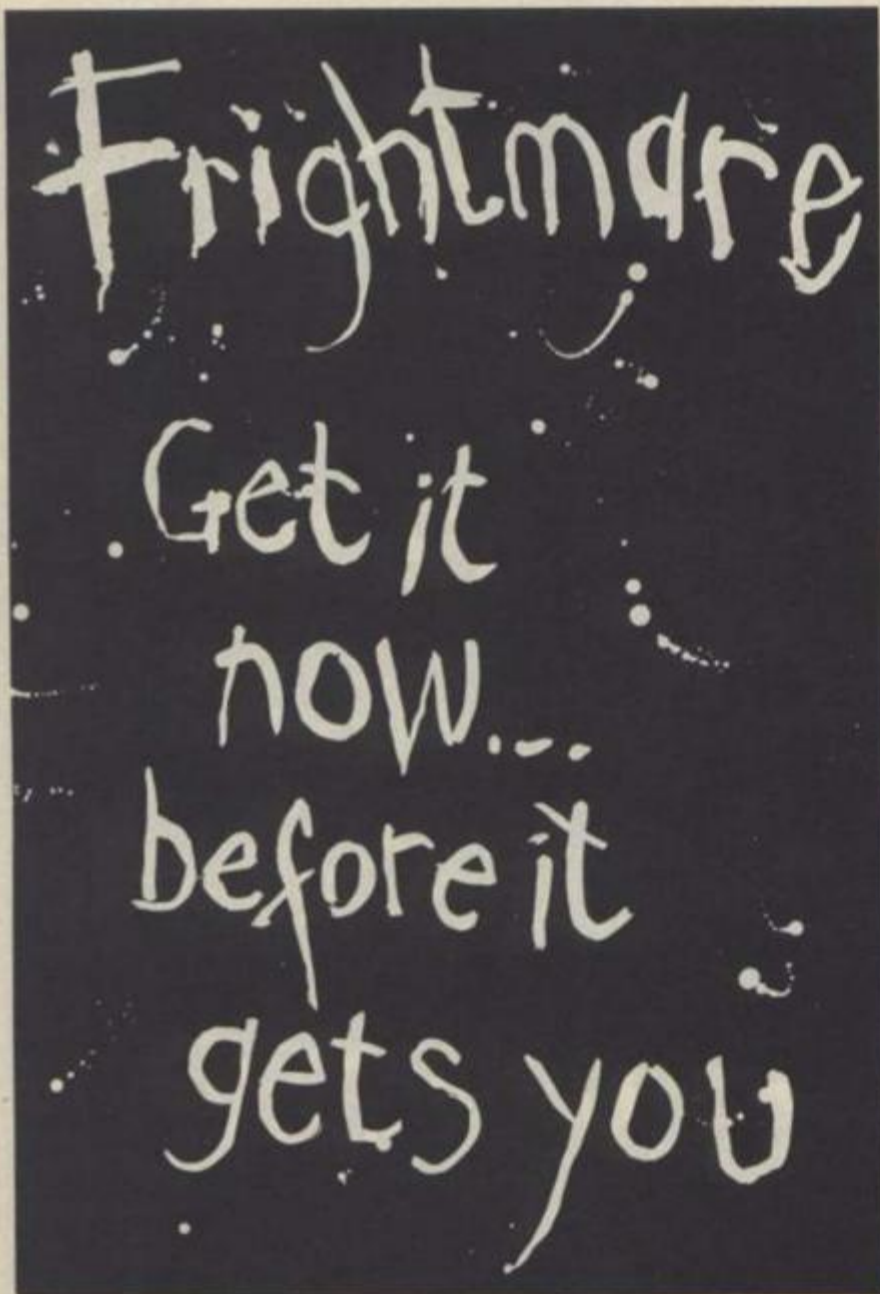 Frightmare
Get it
now...
before it
gets you